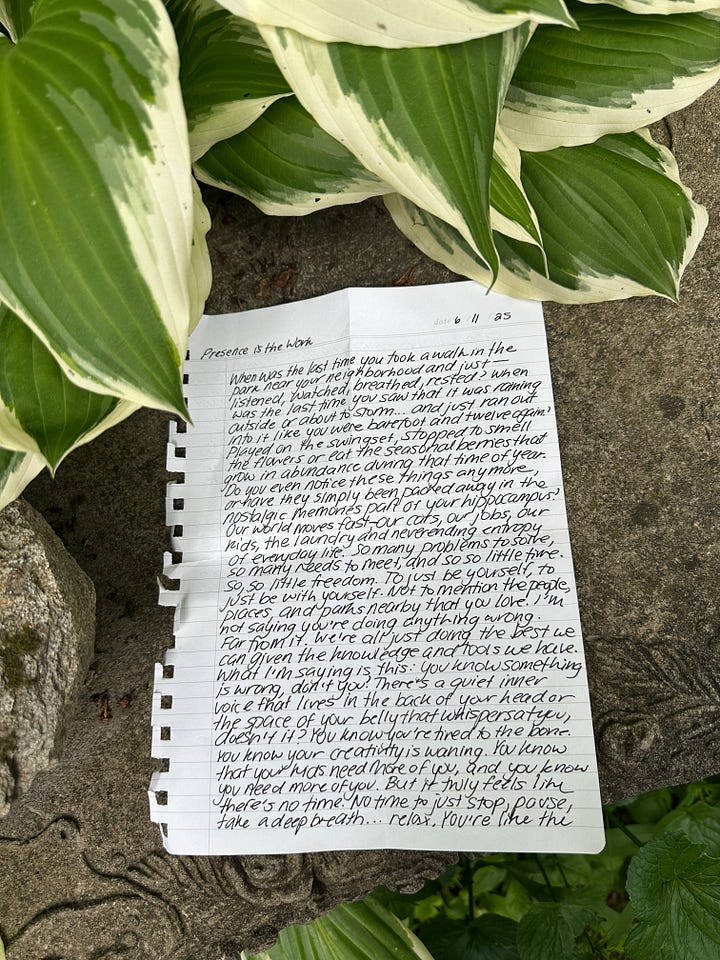 date 6 / 11 / 25
Presence is the Work
When was the last time you took a walk in the
park near your neighborhood and just
listened, watched, breathed, rested? When
was the last time you saw that it was raining
outside or about to storm... and just ran out
into it like you were barefoot and twelve again?
Played on the swingset, stopped to smell
the flowers or eat the seasonal berries that
grow in abundance during that time of year.
Do you even notice these things anymore,
or have they simply been packed away in the
nostalgic memories part of your hippocampus?
Our world moves fast-our cars, our jobs, our
kids, the laundry and neverending entropy
of everyday life. So many problems to solve,
so many needs to meet, and so so little time.
So, so little freedom. To just be yourself, to
just be with yourself. Not to mention the people,
places, and paths nearby that you love. I'm
not saying you're doing anything wrong.
Far from it. We're all just doing the best we
can given the knowledge and tools we have.
What I'm saying is this: you know something
is wrong, don't you? There's a quiet inner
voice that lives in the back of your head or
the space of your belly that whispers at you,
doesn't it? You know you're tired to the bone.
You know your creativity is waning. You know
that your kids need more of you, and you know
you need more of you. But it truly feels like
there's no time. No time to just stop, pause,
take a deep breath... relax. You're like the